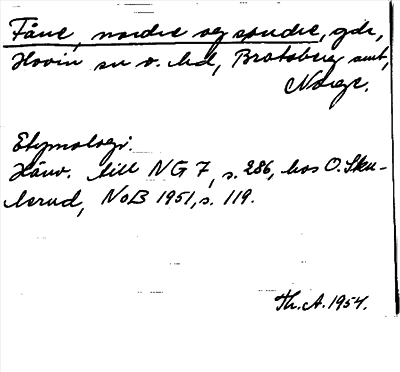 Fåne, nordre og søndre, gdr,
Hovin sn o. hd, Bratsberg amt,
Norge.
Etymologi.
Hänv. till NG 7, s. 286, hos O. Sku-
lerud, NoB 1951, s. 119.
Th. A. 1954.